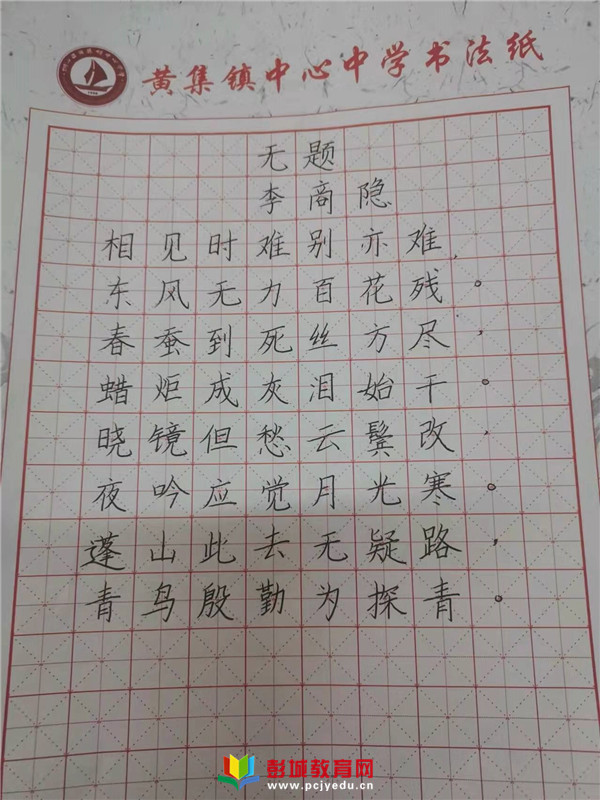 黄集镇中心中学书法纸
无题
李商隐
相见时难别亦难，
东风无力百花残。
春蚕到死丝方尽，
蜡炬成灰泪始干。
晓镜但愁云鬓改，
夜吟应觉月光寒。
蓬山此去无疑路，
青鸟殷勤为探青。
彭城教育网
www.pcjyedu.cn